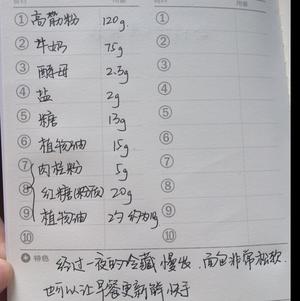 ① 高筋粉 120g.
② 牛奶 75g
③ 酵母 2.3g
④ 盐 2g
⑤ 糖 13g
⑥ 植物油 15g
⑦ 肉桂粉 5g
⑧ 红糖(粉状) 20g
⑨ 植物油 2勺 约10g
⑩
特色 经过一夜的冷藏慢发.面包非常松软.
也可以让早餐更新鲜快手
①
②
③
④
⑤
⑥
⑦
⑧
⑨
⑩